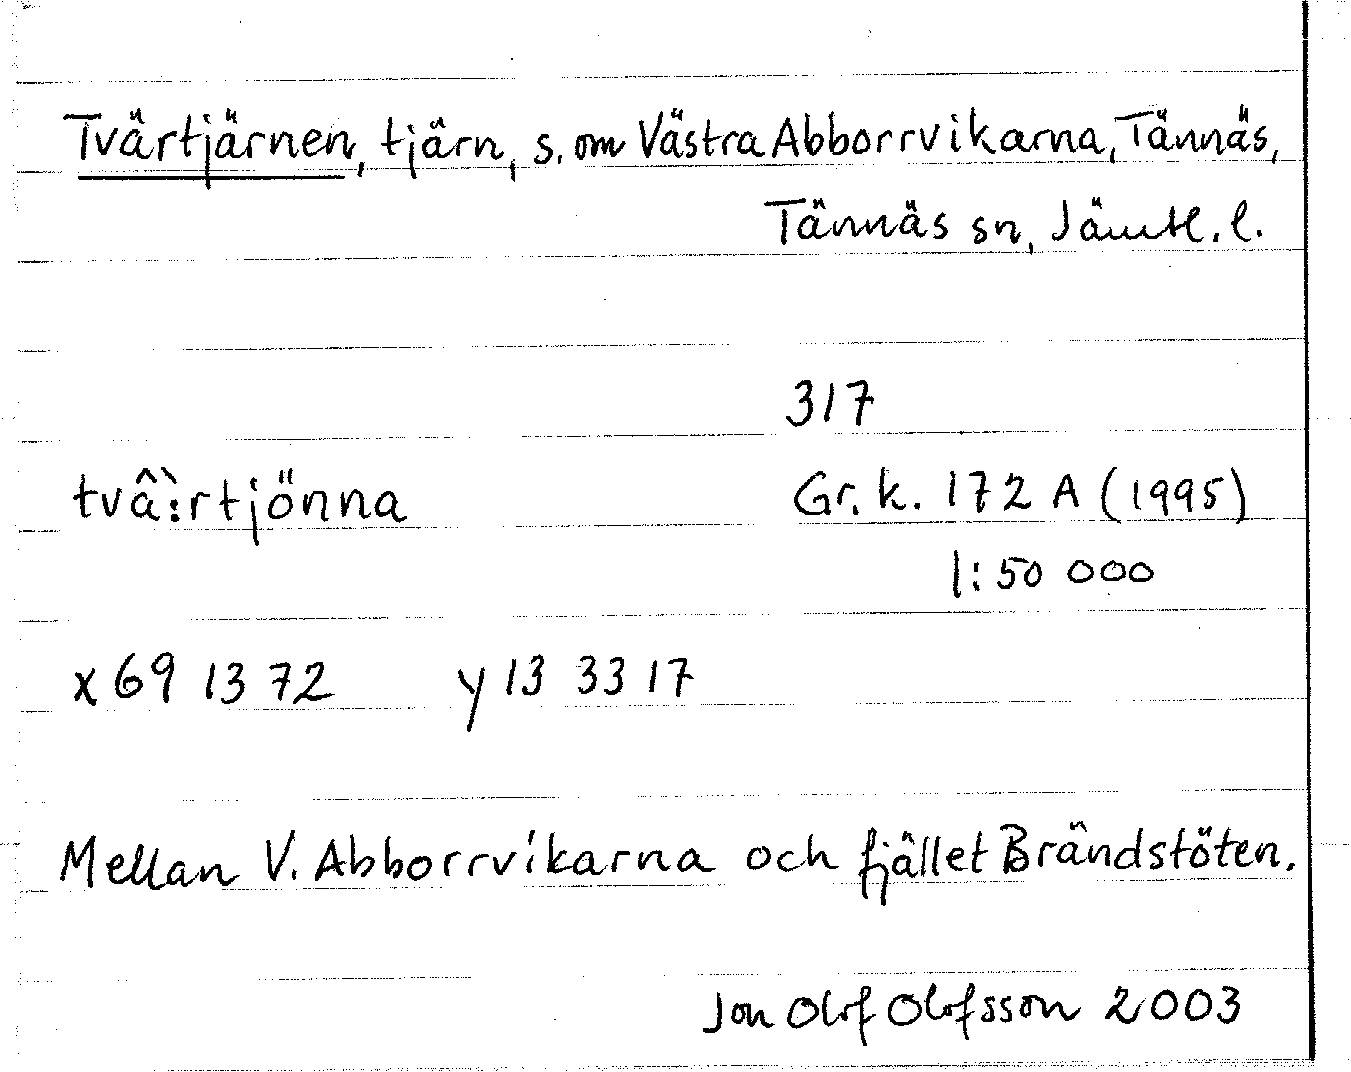 Tvärtjärnen, tjärn, s. om Västra Abborrvikarna, Tännäs,
Tännäs sn, Jämtl. l.
317
tvầ:rtjönna Gr. k. 172 A (1995)
1:50 000
x 69 13 72 y 13 33 17
Mellan V. Abborrvikarna och fjället Brändstöten.
Jon Olof Olofsson 2003